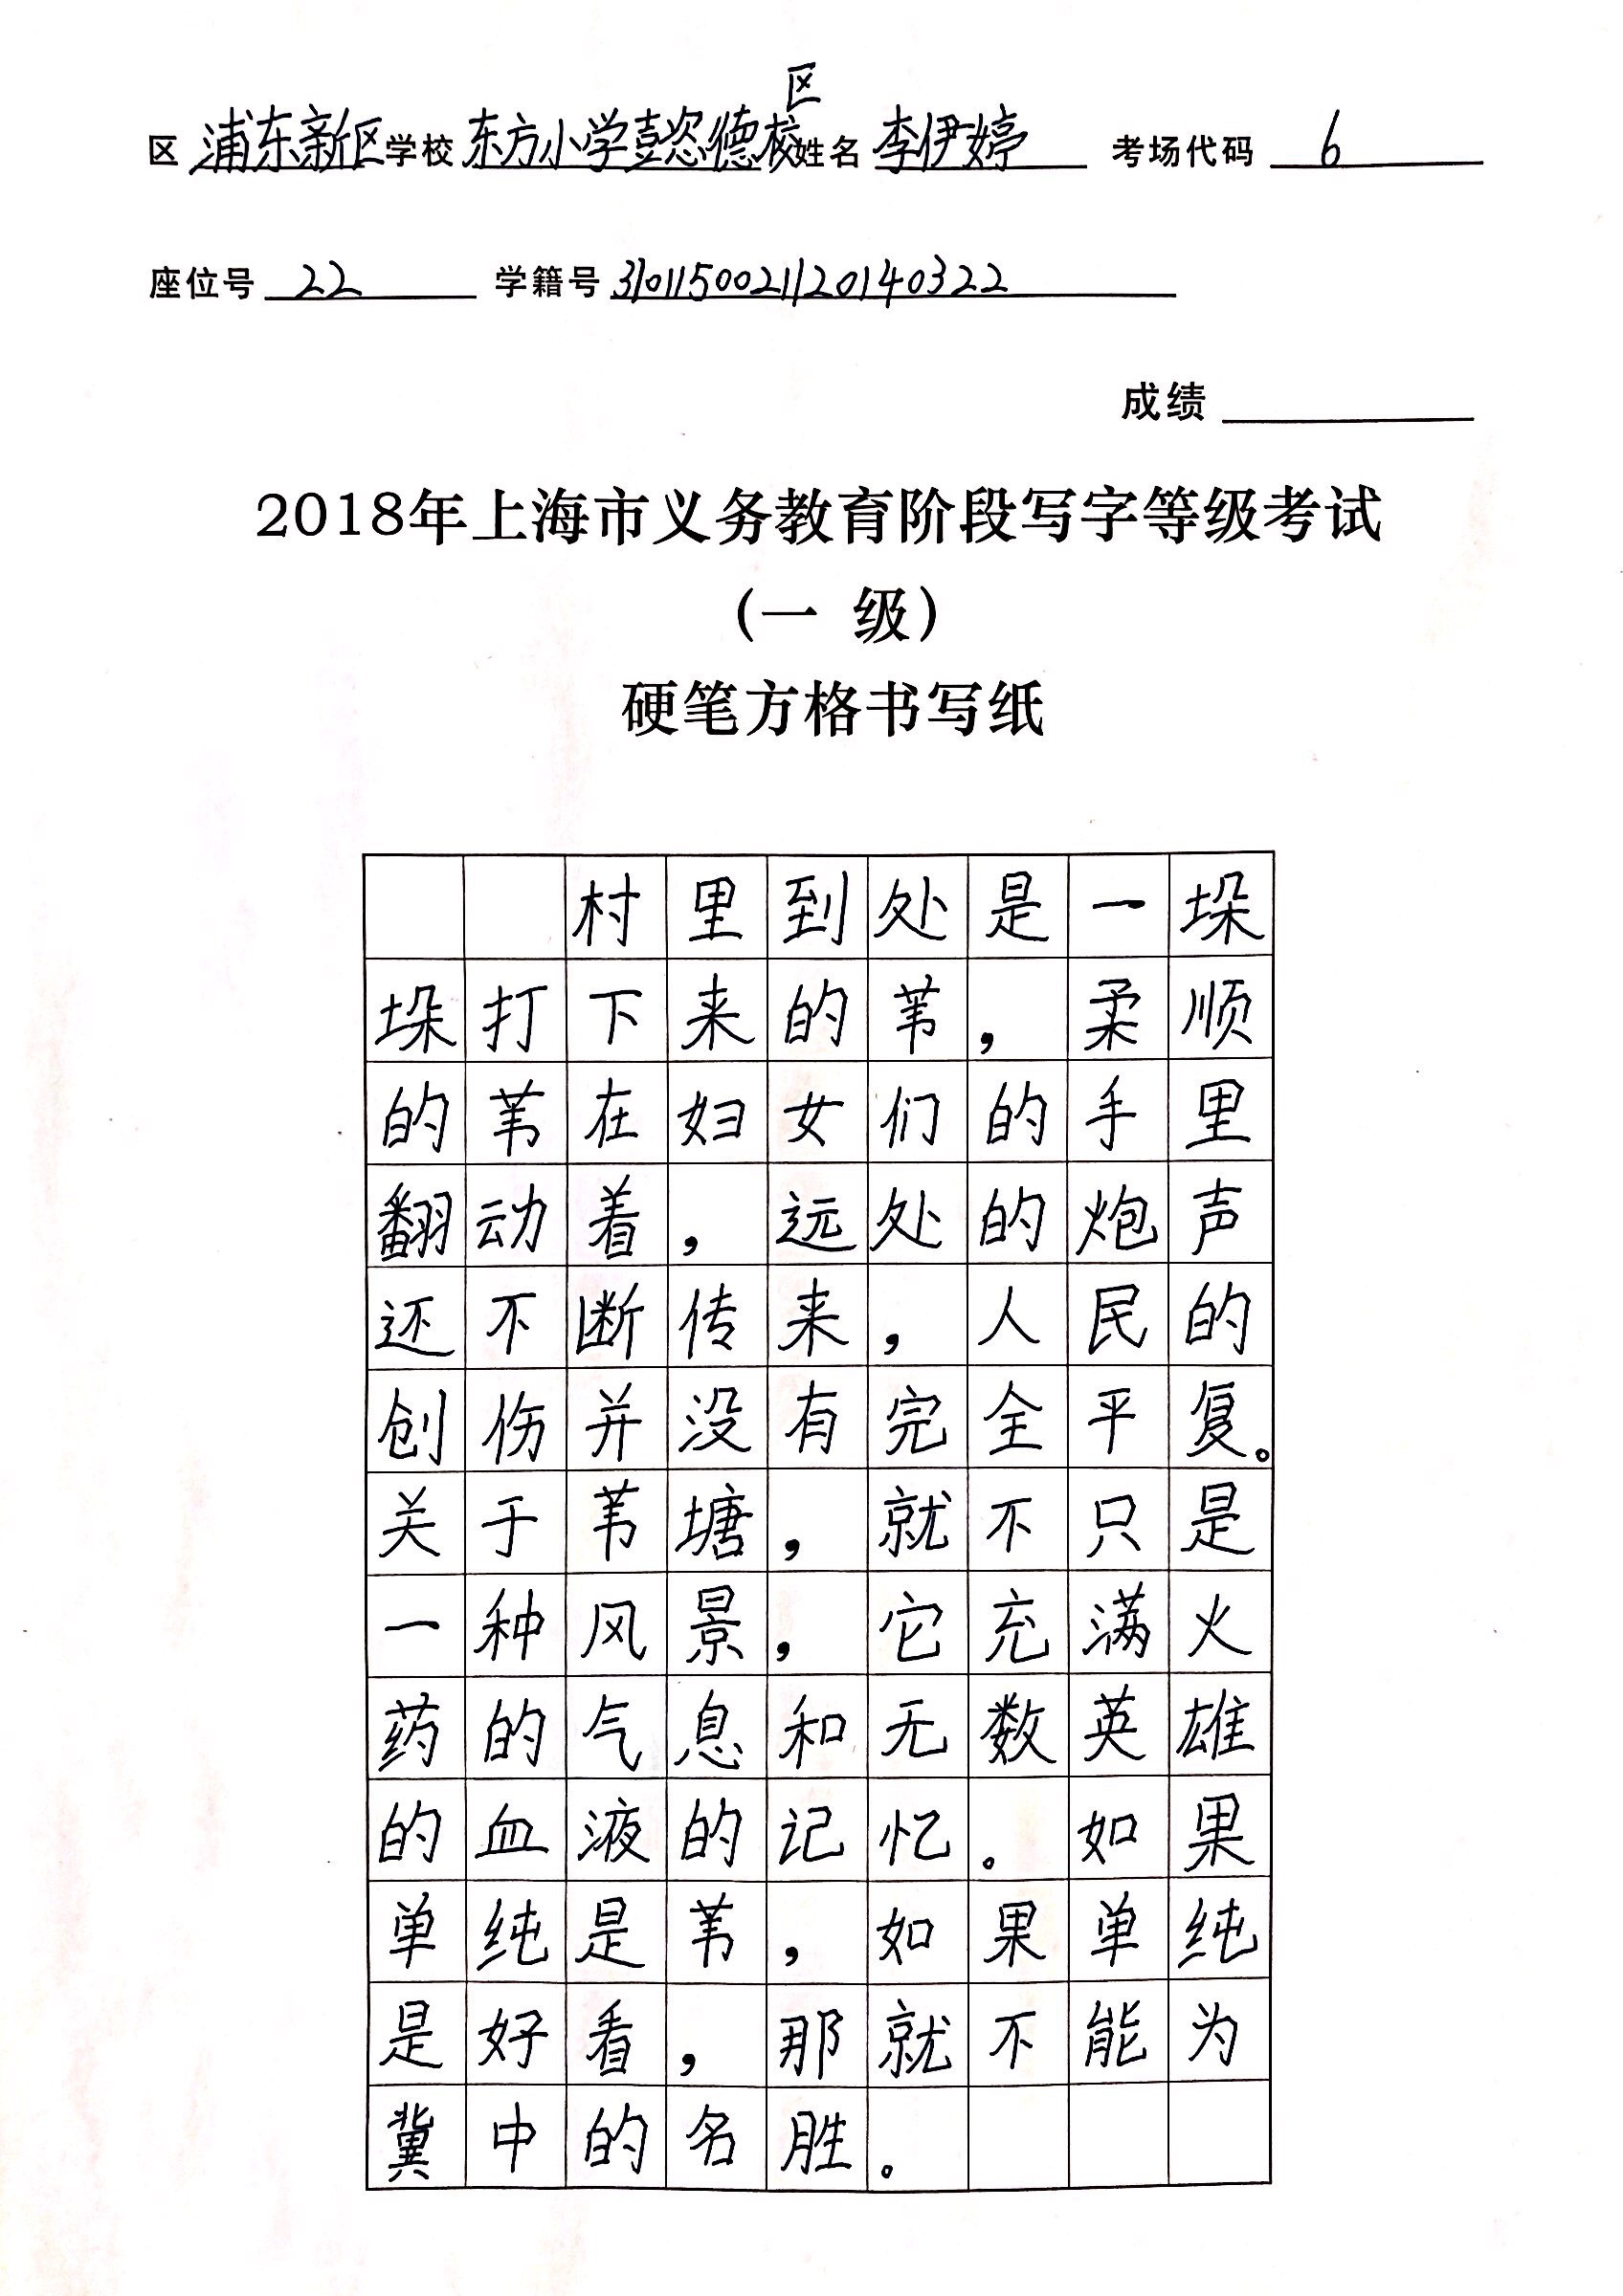 区 浦东新区 学校 东方小学懿德校区 姓名 李伊婷 考场代码 6
座位号 22 学籍号 3101150021120140322
成绩
2018年上海市义务教育阶段写字等级考试
(一 级)
硬笔方格书写纸
村里到处是一垛
垛打下来的苇，柔顺
的苇在妇女们的手里
翻动着，远处的炮声
还不断传来，人民的
创伤并没有完全平复。
关于苇塘，就不只是
一种风景，它充满火
药的气息和无数英雄
的血液的记忆。如果
单纯是苇，如果单纯
是好看，那就不能为
冀中的名胜。